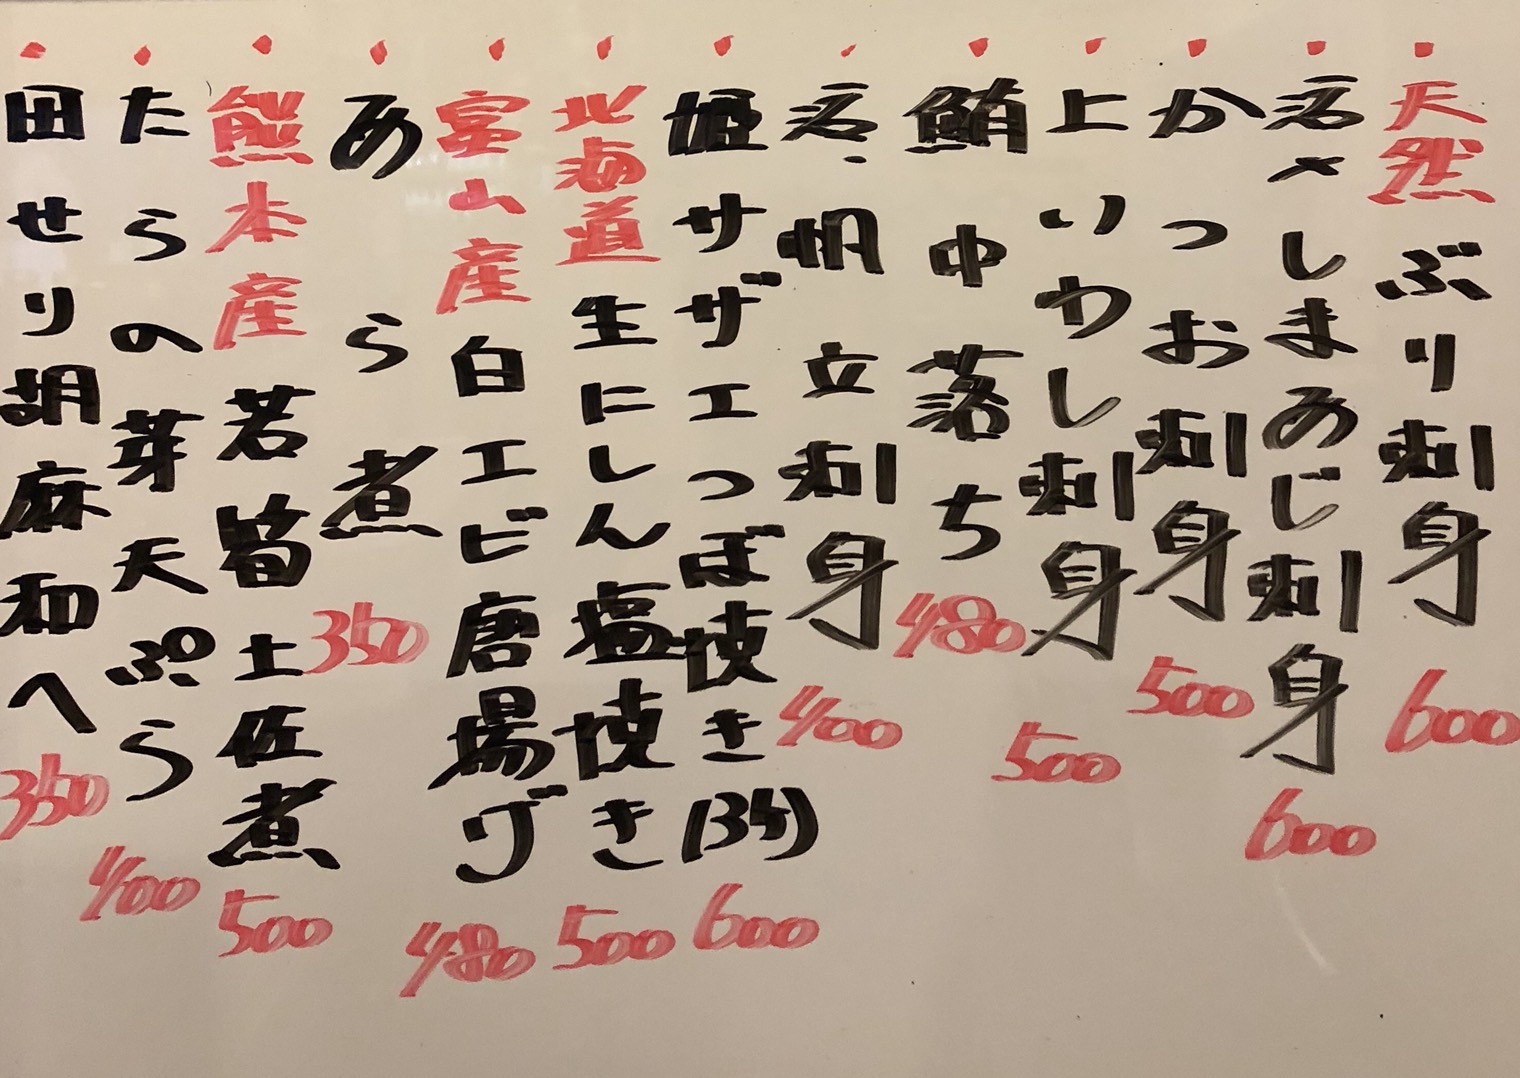 天然ぶり刺身 600
活〆しまあじ刺身 600
かつお刺身 500
上いわし刺身 500
鮪中落ち 480
活帆立刺身 400
姫サザエつぼ焼き(3ケ) 600
北海道生にしん塩焼き 500
富山産白エビ唐揚げ 480
あら煮 350
熊本産若筍土佐煮 500
たらの芽天ぷら 400
田せり胡麻和へ 350